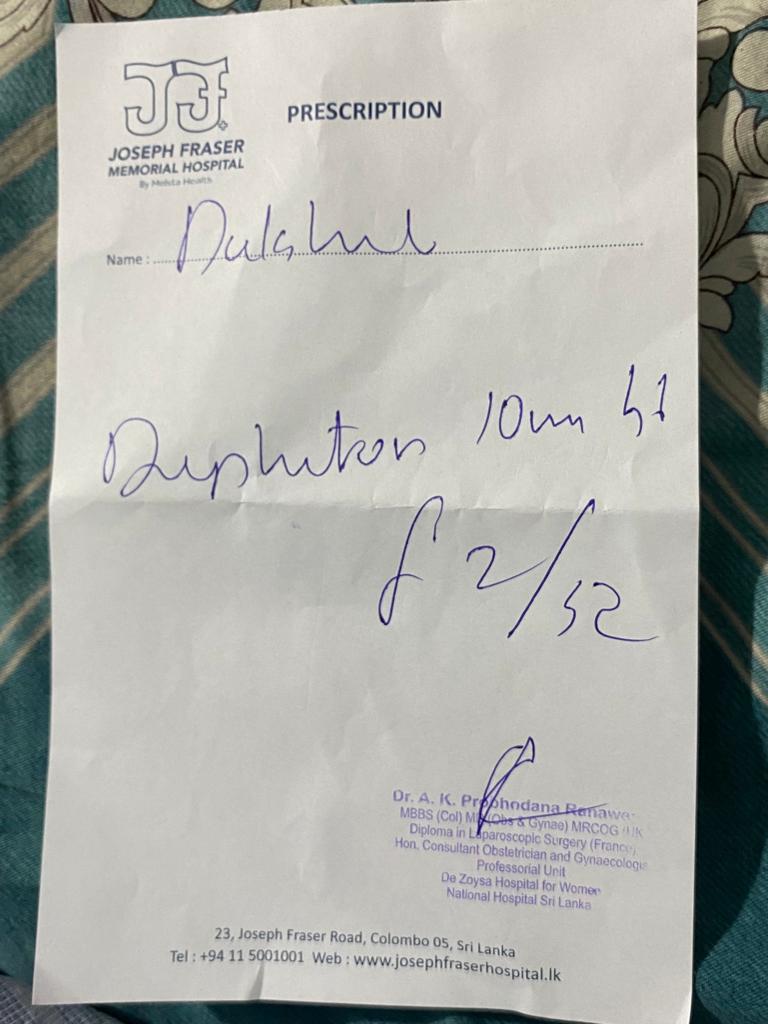 JJF
PRESCRIPTION
JOSEPH FRASER
MEMORIAL HOSPITAL
By Melsta Health
Name :
Duphaston 10mg
f 2/52
Dr. A. K. Probhodana Ranawe
MBBS (Col) MD (Obs & Gynae) MRCOG (UK
Diploma in Laparoscopic Surgery (France)
Hon. Consultant Obstetrician and Gynaecologis
Professorial Unit
De Zoysa Hospital for Women
National Hospital Sri Lanka
23, Joseph Fraser Road, Colombo 05, Sri Lanka
Tel : +94 11 5001001 Web : www.josephfraserhospital.lk